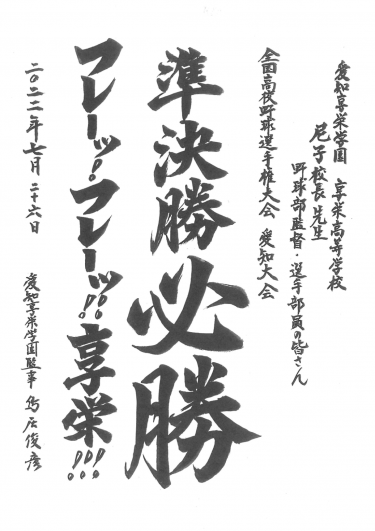 愛知享栄学園 享栄高等学校
尼子校長先生
野球部監督・選手部員の皆さん
全国高校野球選手権大会 愛知大会
準決勝必勝
フレーッ!フレーッ!!享栄!!!
二〇二二年七月二十六日
愛知享栄学園監事 鳥居俊彦